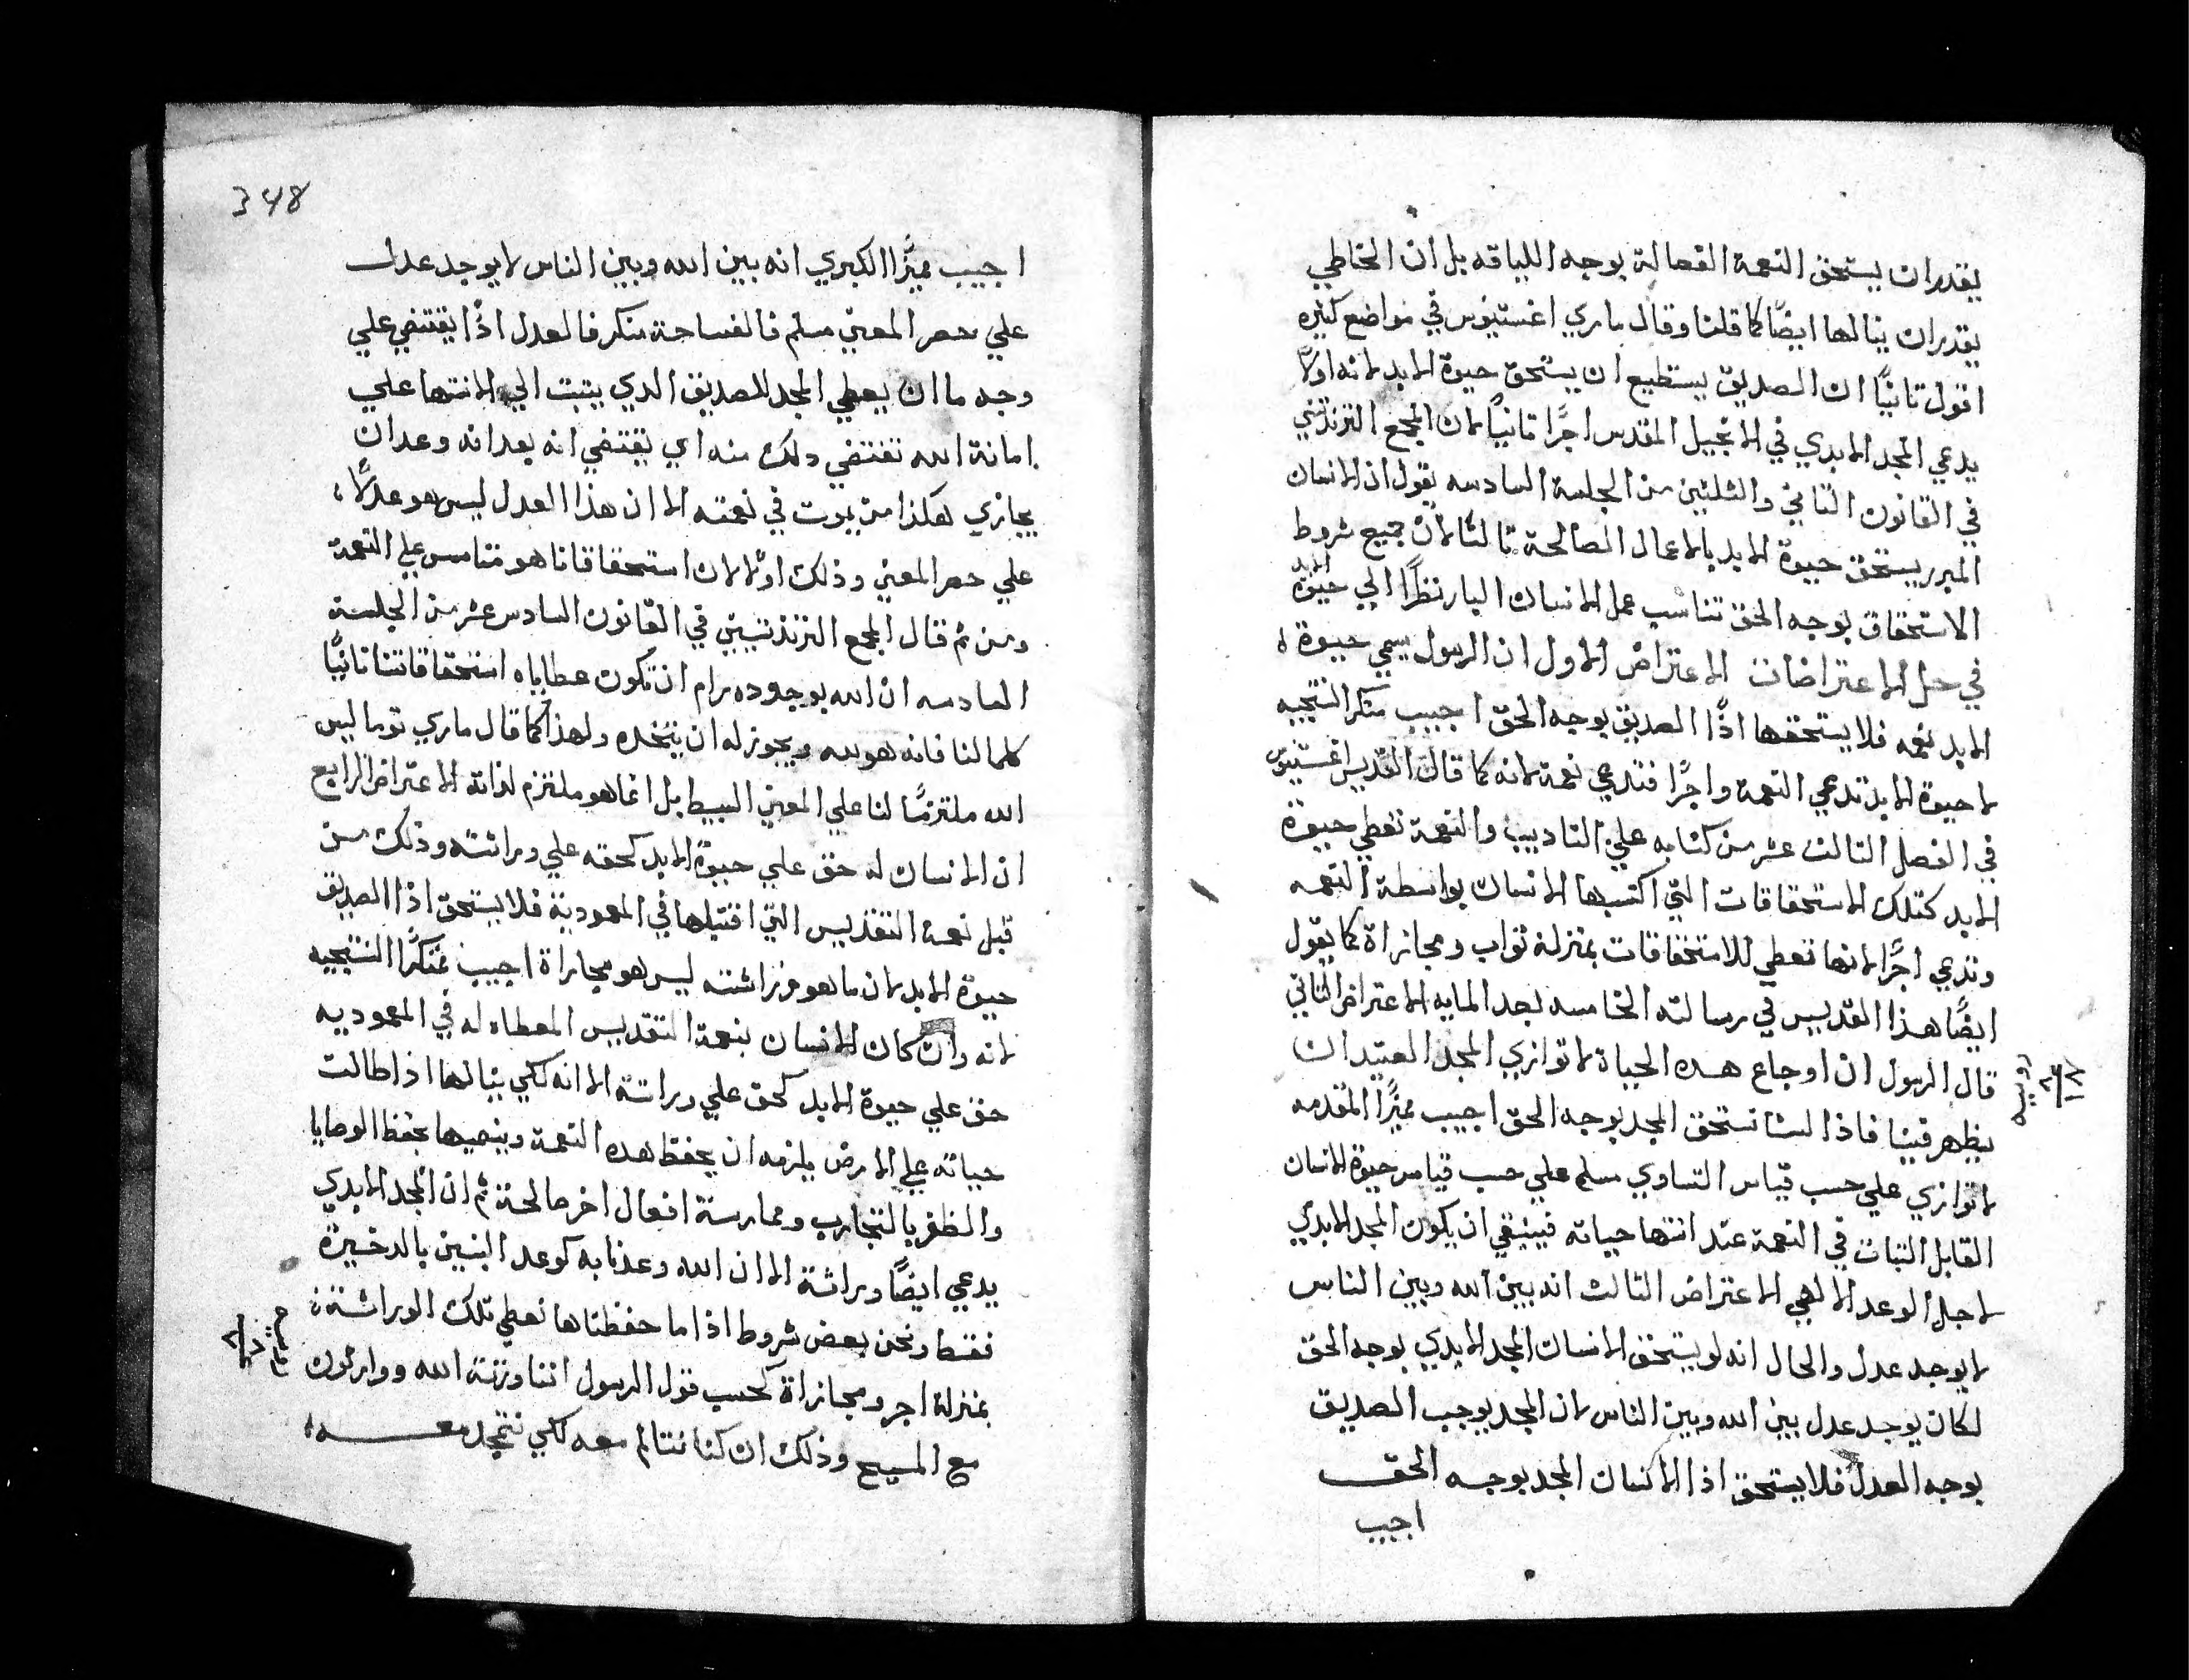 يقدر ان يستحق النعمة الفعالة بوجه اللياقه بل ان الخاطي
يقدر ان ينالها ايضًا كما قلنا وقال ماري اغستينوس في مواضع كثيره
اقول ثانيًا ان الصديق يستطيع ان يستحق حيوة الابد لانه اولًا
يدعي المجد الابدي في الانجيل المقدس اجرًا ثانيًا لان المجمع التريدنتيني
في القانون الثاني والثلثين من الجلسة السادسه يقول ان الانسان
المبرر يستحق حيوة الابد بالاعمال الصالحة ثالثًا لان جميع شروط
الاستحقاق بوجه الحق تناسب عمل الانسان البار نظرًا الي حيوة الابد
في حل الاعتراضات الاعتراض الاول ان الرسول يسمي حيوة
الابد نعمه فلا يستحقها اذًا الصديق بوجه الحق اجيب منكر النتيجه
لا حيوة الابد تدعي النعمة واجرًا فتدعي نعمة لانه كما قال القديس اغستينوس
في الفصل الثالث عشر من كتابه علي التاديب والنعمة تعطي حيوة
الابد كتلك الاستحقاقات التي اكتسبها الانسان بواسطة النعمه
وتدعي اجرًا لانها تعطي للاستحقاقات بمنزلة ثواب ومجازاة كما يقول
ايضًا هذا القديس في رسالته الخامسه بعد المايه الاعتراض الثاني
قال الرسول ان اوجاع هذه الحياة لا توازي المجد العتيد ان
يظهر فينا فاذا لسنا نستحق المجد بوجه الحق اجيب مميزًا المقدمه
لا توازي علي حسب قياس التساوي مسلم علي حسب قياس حيوة الانسان
القابل الثبات في النعمة عند انتها حياته فينبغي ان يكون المجد الابدي
لاجل الوعد الالهي الاعتراض الثالث انه بين الله وبين الناس
لا يوجد عدل والحال انه لو يستحق الانسان المجد الابدي بوجه الحق
لكان يوجد عدل بين الله وبين الناس لان المجد يوجب الصديق
بوجه العدل فلا يستحق اذا الانسان المجد بوجه الحق
اجيب
روميه
٨
١٨
348
اجيب مميزًا الكبري انه بين الله وبين الناس لا يوجد عدل
علي حصر المعني مسلم فالفساحة منكر فالعدل اذًا يقتضي علي
وجه ما ان يعطي المجد للصديق الدي يثبت الي الانتها علي
امانة الله تقتضي دلك منه اي يقتضي انه بعد انه وعد ان
يجازي هكذا من يموت في نعمته الا ان هذا العدل ليس هو عدلًا
علي حصر المعني وذلك اولا لان استحقاقانا هو متاسس علي النعمة
ومن ثم قال المجمع التريدنتيني في القانون السادس عشر من الجلسة
السادسه ان الله بوجوده رام ان تكون عطاياه استحقاقاتنا ثانيًا
كلما لنا فانه هو لله ويجوز له ان يتخده ولهذا كما قال ماري توما ليس
الله ملتزمًا لنا علي المعني البسيط بل انما هو ملتزم لذاته الاعتراض الرابع
ان الانسان له حق علي حيوة الابد كحقه علي وراثته وذلك من
قبل نعمة التقديس التي اقتبلها في المعمودية فلا يستحق اذا الصديق
حيوة الابد لان ما هو وراثته ليس هو مجازاة اجيب منكرًا النتيجيه
لانه وان كان للانسان بنعمة التقديس المعطاه له في المعموديه
حق علي حيوة الابد كحق علي وراثة الا انه لكي ينالها اذا طالت
حياته علي الارض يلزمه ان يحفظ هده النعمة وينميها بحفظ الوصايا
والظفر بالتجارب وممارسة افعال اخر صالحة ثم ان المجد الابدي
يدعي ايضًا وراثة الا ان الله وعدنا به كوعد البنين بالدخيرة
فقط ونحن بعض شروط اذا ما حفظناها نعطي تلك الوراثة
بمنزلة اجر ومجازاة كحسب قول الرسول اننا ورثة الله ووارثون
مع المسيح وذلك ان كنا نتالم معه لكي نتمجد معه